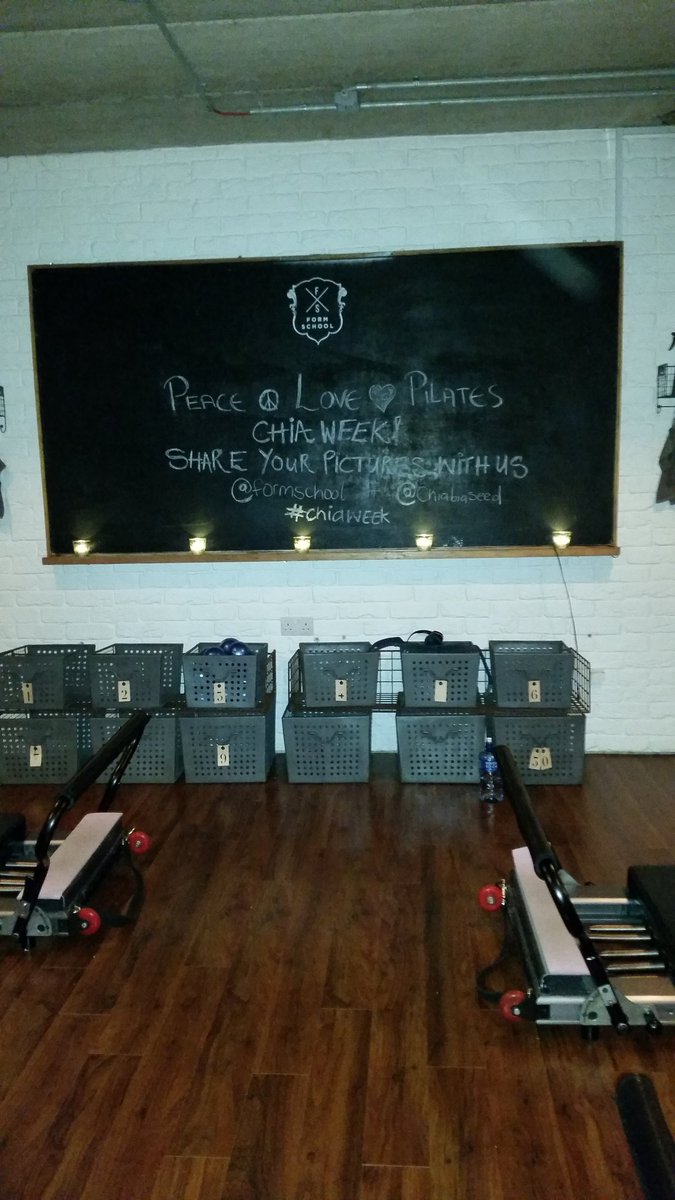 F S
FORM
SCHOOL
PEACE ☮ LOVE ♥ PILATES
CHIA WEEK!
SHARE YOUR PICTURES WITH US
@formschool + @Chiabiaseed
#chiaweek
1
2
3
4
6
7
9
50